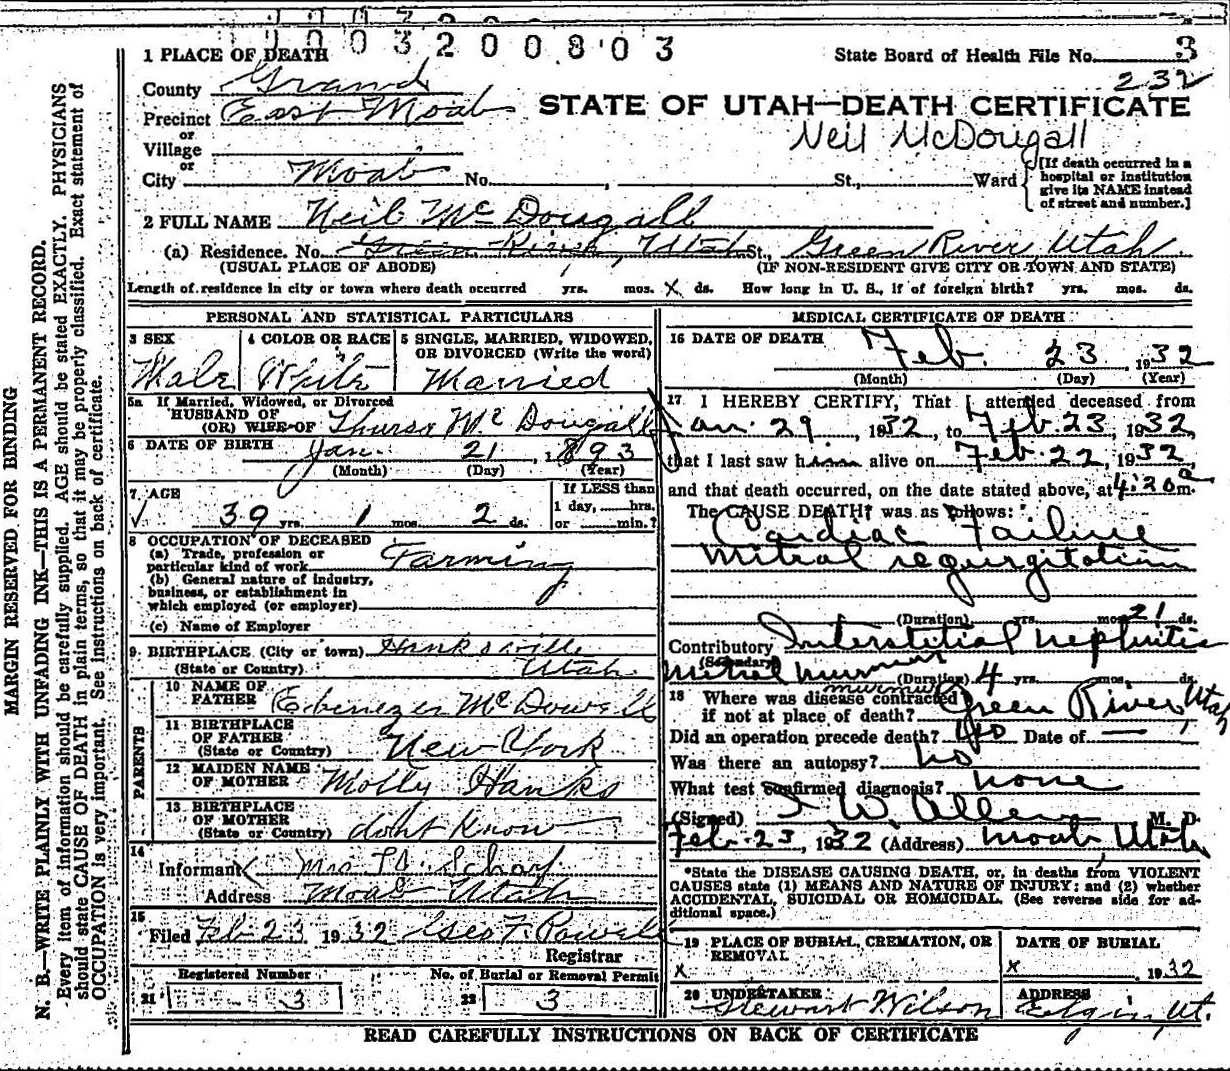 1003200803
1 PLACE OF DEATH
State Board of Health File No. 3
232
County Grand
Precinct East Moab
STATE OF UTAH—DEATH CERTIFICATE
or
Village
Neil McDougall
or
City Moab No. , St., Ward
[If death occurred in a hospital or institution give its NAME instead of street and number.]
2 FULL NAME Neil McDougall
(a) Residence. No. Green River, Utah St., Green River, Utah.
(USUAL PLACE OF ABODE) (IF NON-RESIDENT GIVE CITY OR TOWN AND STATE)
Length of residence in city or town where death occurred yrs. mos. X ds. How long in U. S., if of foreign birth? yrs. mos. ds.
PERSONAL AND STATISTICAL PARTICULARS
3 SEX
Male
4 COLOR OR RACE
White
5 SINGLE, MARRIED, WIDOWED, OR DIVORCED (Write the word)
Married
5a If Married, Widowed, or Divorced
HUSBAND OF
(OR) WIFE OF Thursa McDougall
6 DATE OF BIRTH Jan. 21, 1893
(Month) (Day) (Year)
7. AGE
39 yrs. 1 mos. 2 ds.
If LESS than
1 day, hrs.
or min.?
8 OCCUPATION OF DECEASED
(a) Trade, profession or
particular kind of work Farming
(b) General nature of industry,
business, or establishment in
which employed (or employer)
(c) Name of Employer
9. BIRTHPLACE (City or town) Hanksville
(State or Country) Utah
PARENTS
10 NAME OF
FATHER Ebenezer McDowell
11 BIRTHPLACE
OF FATHER
(State or Country) New York
12 MAIDEN NAME
OF MOTHER Molly Hanks
13 BIRTHPLACE
OF MOTHER
(State or Country) dont Know
14
Informant Mrs Scharf
Address Moab Utah
15
Filed Feb 23 1932 Geo F. Powell
Registrar
Registered Number
21 3
No. of Burial or Removal Permit
22 3
MEDICAL CERTIFICATE OF DEATH
16 DATE OF DEATH Feb. 23, 1932
(Month) (Day) (Year)
17 I HEREBY CERTIFY, That I attended deceased from
Jan. 29, 1932, to Feb. 23, 1932,
that I last saw him alive on Feb. 22, 1932,
and that death occurred, on the date stated above, at 4:20 a m.
The CAUSE DEATH* was as follows:
Cardiac Failure
Mitral regurgitation
(Duration) yrs. mos. 21 ds.
Contributory Interstitial nephritis
(Secondary)
Mitral murmur (Duration) 4 yrs. ds.
murmur
18 Where was disease contracted
if not at place of death? Green River, Utah
Did an operation precede death? No Date of —
Was there an autopsy? no
What test confirmed diagnosis? none
(Signed) I. W. Allen M. D.
Feb. 23, 1932 (Address) Moab, Utah
*State the DISEASE CAUSING DEATH, or, in deaths from VIOLENT
CAUSES state (1) MEANS AND NATURE OF INJURY; and (2) whether
ACCIDENTAL, SUICIDAL OR HOMICIDAL. (See reverse side for ad-
ditional space.)
19 PLACE OF BURIAL, CREMATION, OR
REMOVAL
x
DATE OF BURIAL
x , 1932
20 UNDERTAKER
Stewart Wilson
ADDRESS
Elgin, Ut.
READ CAREFULLY INSTRUCTIONS ON BACK OF CERTIFICATE
MARGIN RESERVED FOR BINDING
N. B.—WRITE PLAINLY WITH UNFADING INK—THIS IS A PERMANENT RECORD.
Every item of information should be carefully supplied. AGE should be stated EXACTLY. PHYSICIANS
should state CAUSE OF DEATH in plain terms, so that it may be properly classified. Exact statement of
OCCUPATION is very important. See instructions on back of certificate.